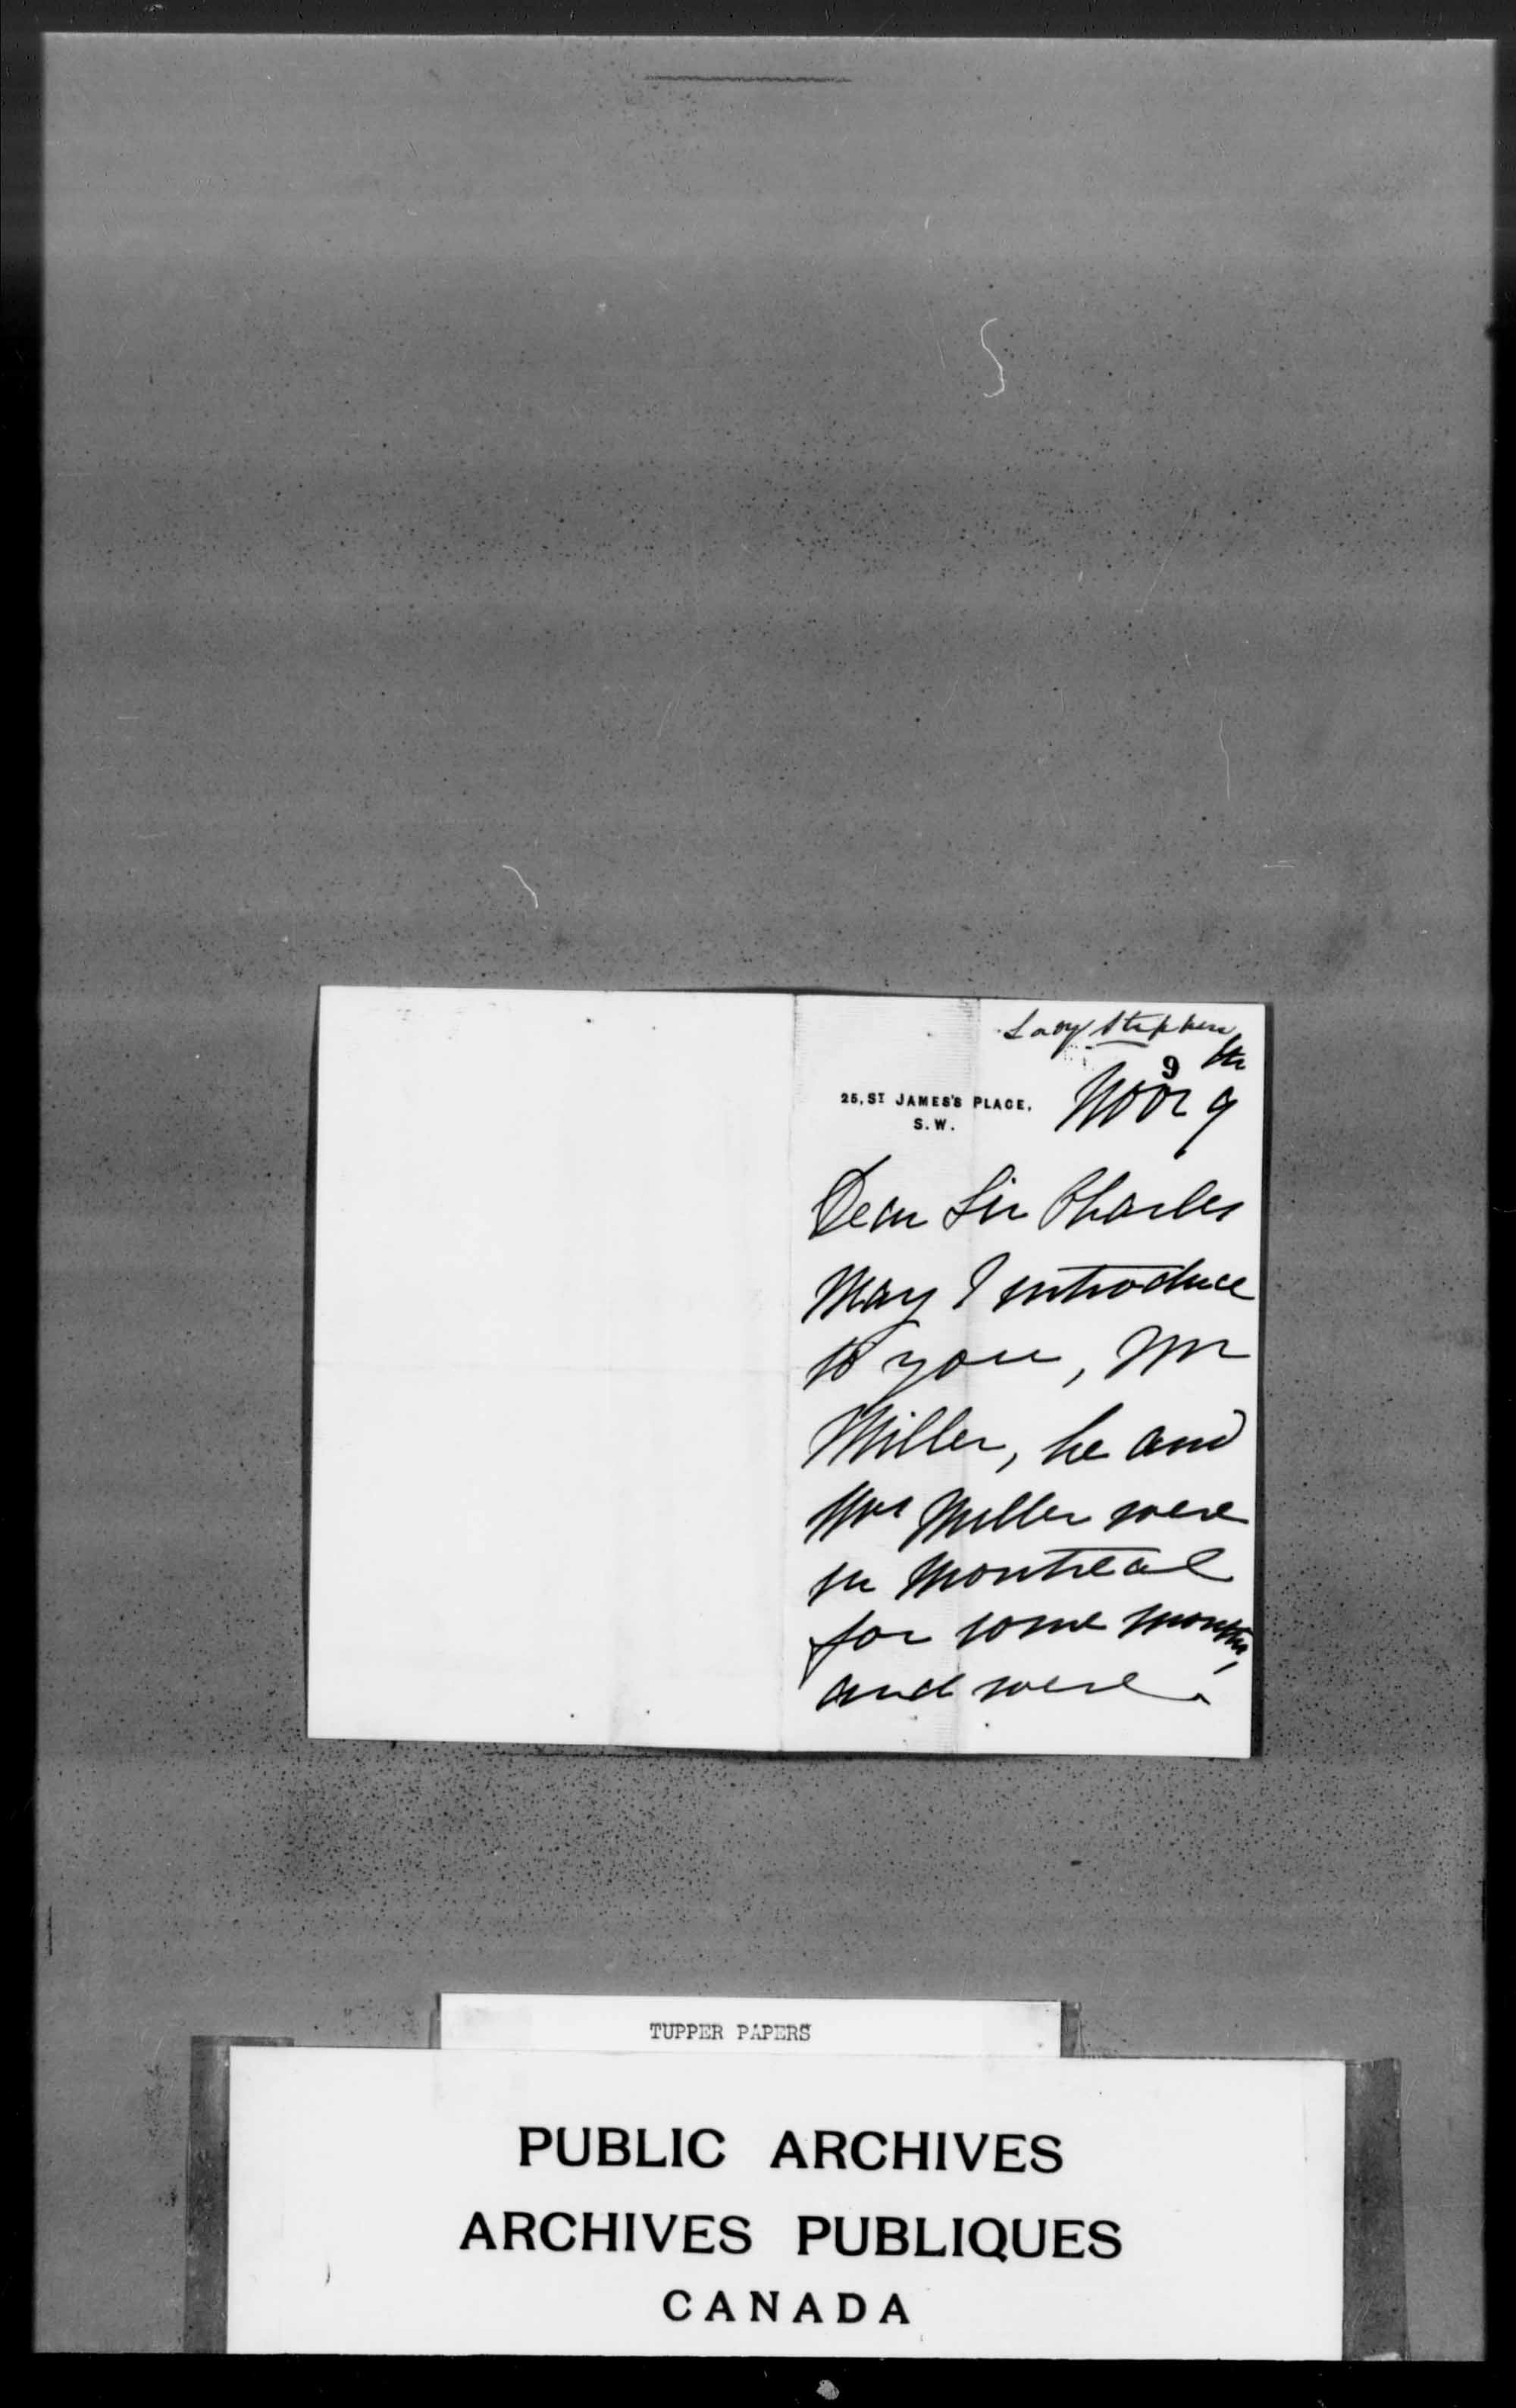 Lady Stephen
9
25, ST JAMES'S PLACE,
S. W.
Novr 9th
Dear Sir Charles
May I introduce
to you, Mr
Miller, he and
Mrs Miller were
in Montreal
for some months,
and were
TUPPER PAPERS
PUBLIC ARCHIVES
ARCHIVES PUBLIQUES
CANADA